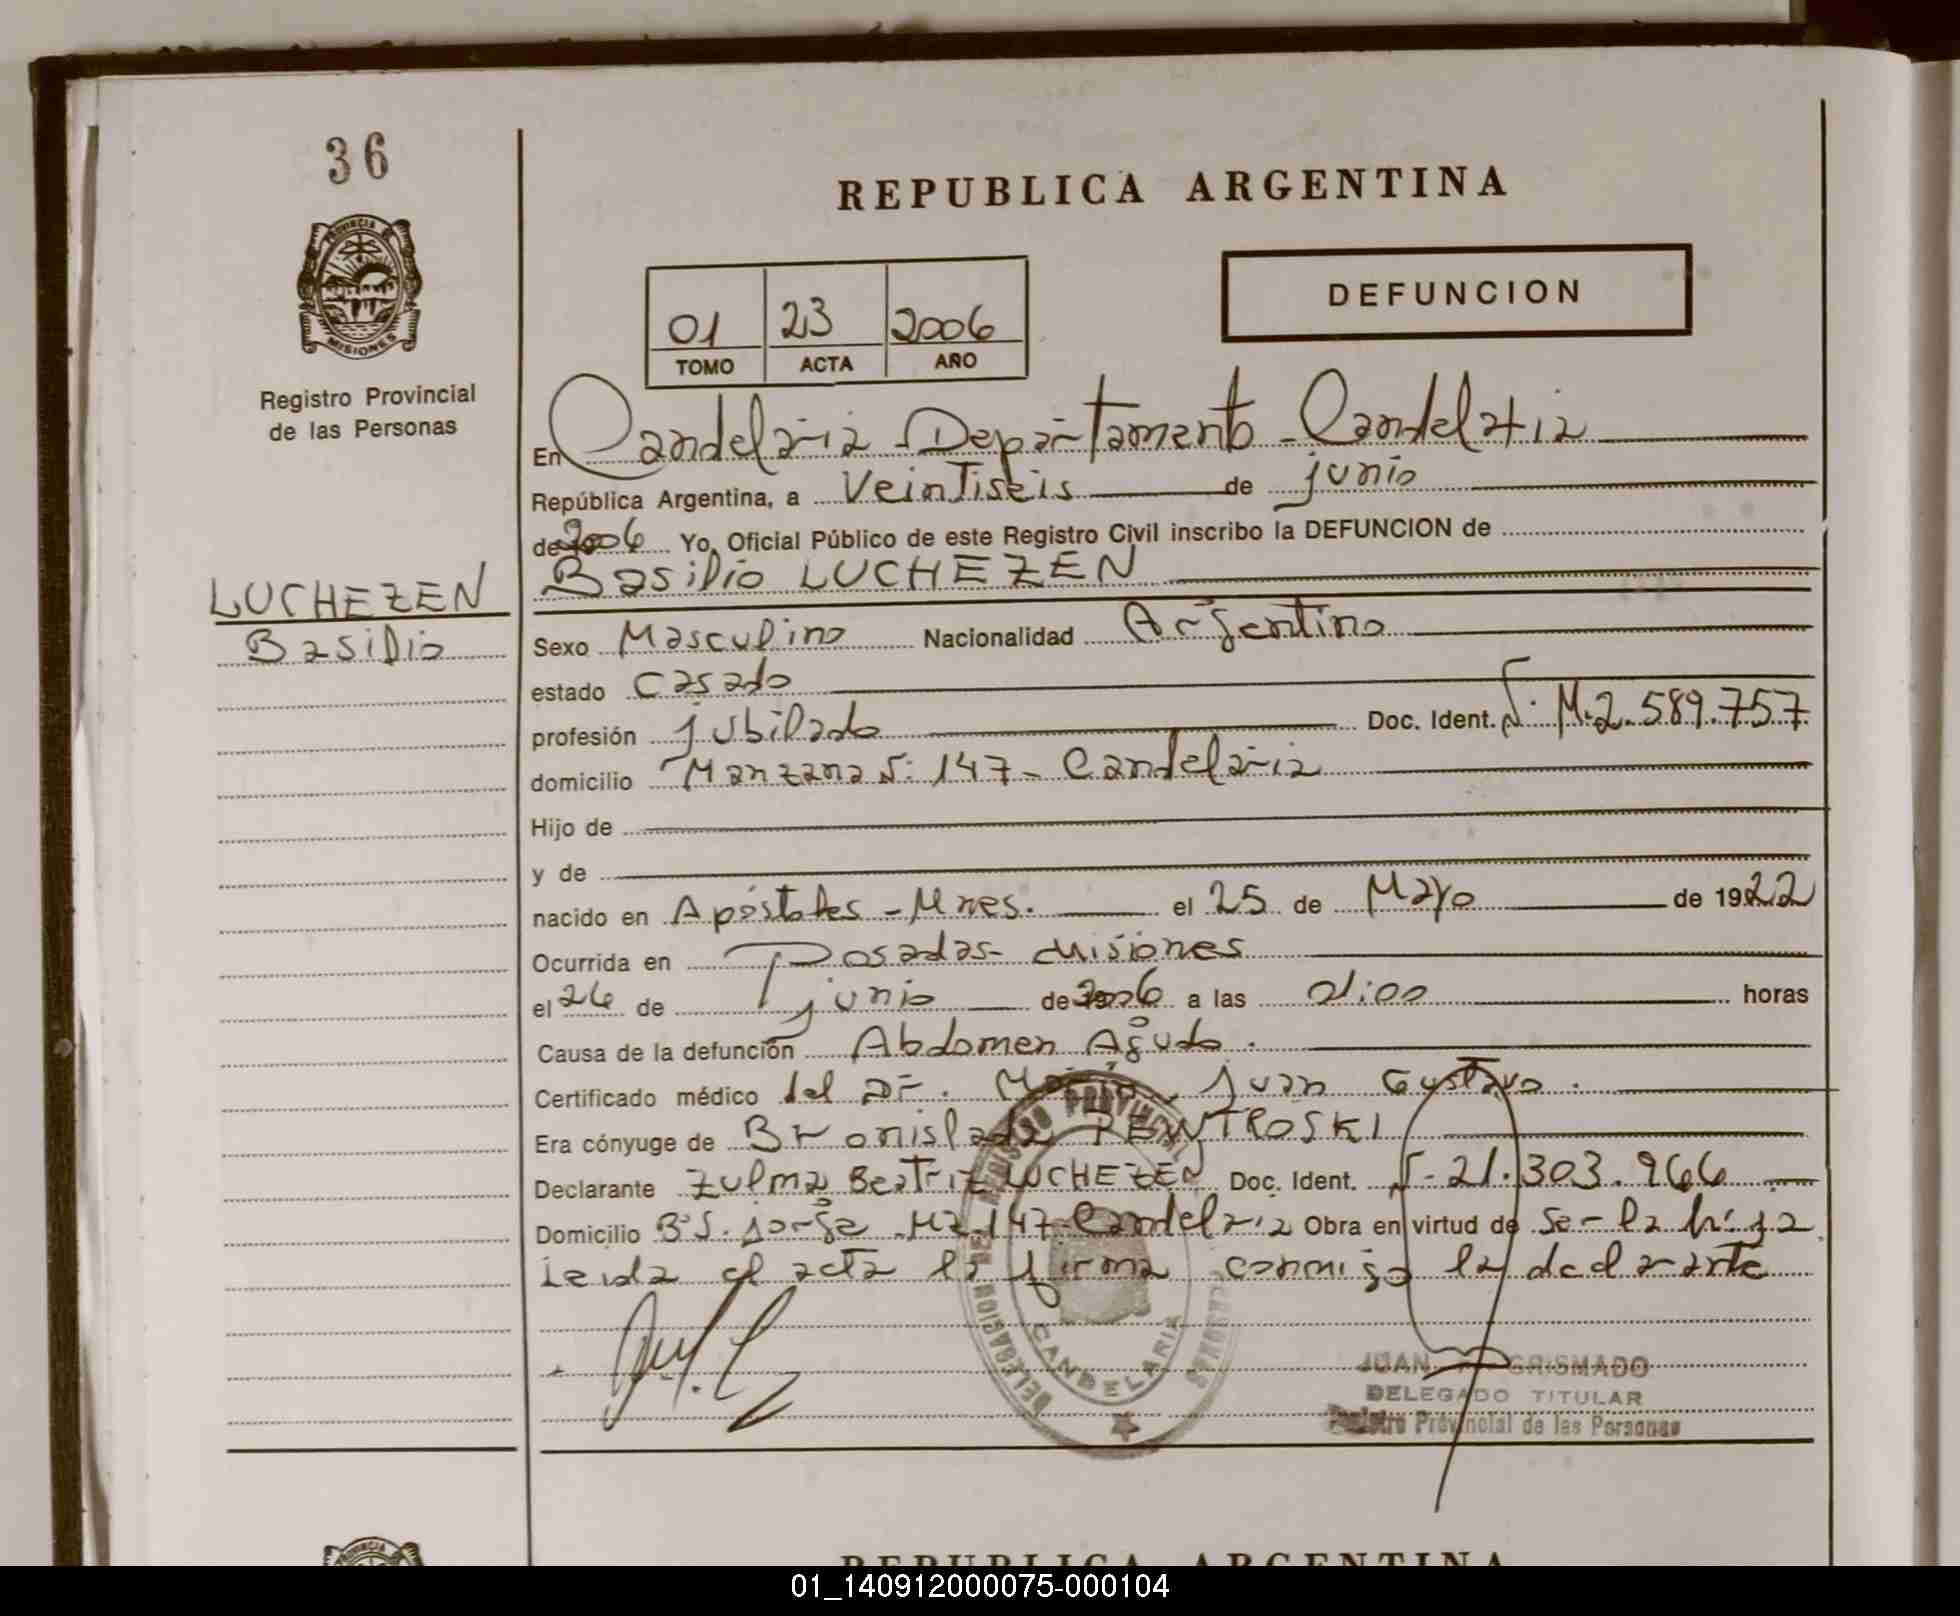 36
REPUBLICA ARGENTINA
PROVINCIA DE MISIONES
Registro Provincial
de las Personas
01 23 2006
TOMO ACTA AÑO
DEFUNCION
En Candelaria - Departamento - Candelaria
República Argentina, a Veintiseis de junio
de 2006 Yo, Oficial Público de este Registro Civil inscribo la DEFUNCION de
Basilio LUCHEZEN
LUCHEZEN
Basilio
Sexo Masculino Nacionalidad Argentino
estado Casado
profesión jubilado Doc. Ident. N: M.2.589.757
domicilio Manzana N: 147 - Candelaria
Hijo de
y de
nacido en Apóstoles - Mnes. el 25 de Mayo de 1922
Ocurrida en Posadas - Misiones
el 26 de junio de 2006 a las 01:00 horas
Causa de la defunción Abdomen Agudo.
Certificado médico del Dr. Juan Gustavo.
Era cónyuge de Bronislada PEWTROSKI
Declarante Zulma Beatriz LUCHEZEN Doc. Ident. N- 21.303.966
Domicilio B° S. jorge - Mz 147 - Candelaria Obra en virtud de Ser la hija
Leida el acta la firma conmigo la declarante
REGISTRO PROVINCIAL DE LAS PERSONAS
DELEGACION
CANDELARIA
JUAN GRISMADO
DELEGADO TITULAR
Registro Provincial de las Personas
REPUBLICA ARGENTINA
01_140912000075-000104